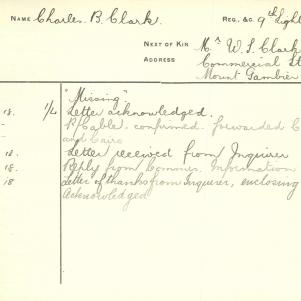 NAME Charles B. Clark. REG. &C. 9th Light
NEXT OF KIN Mr W. S. Clark
ADDRESS Commercial St
Mount Gambier
"Missing"
18. 1/4 Letter acknowledged.
- Cable confirmed. forwarded C
- and Cairo
18. Letter received from Inquirer
18. Reply from Commrs. Information
18 Letter of thanks from inquirer, enclosing
Acknowledged